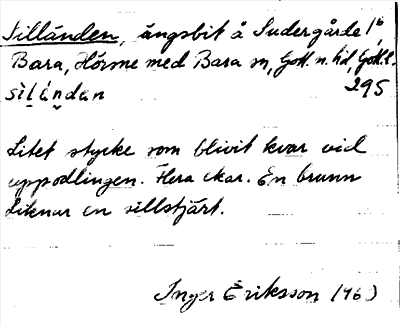 Silländen, ängsbit å Sudergårde 1⁶
Bara, Hörsne med Bara sn, Gotl. n. hd, Gotl. l.
sìlándan 295
Litet stycke som blivit kvar vid
uppodlingen. Flera ekar. En brunn
liknar en sillstjärt.
Inger Eriksson (46)